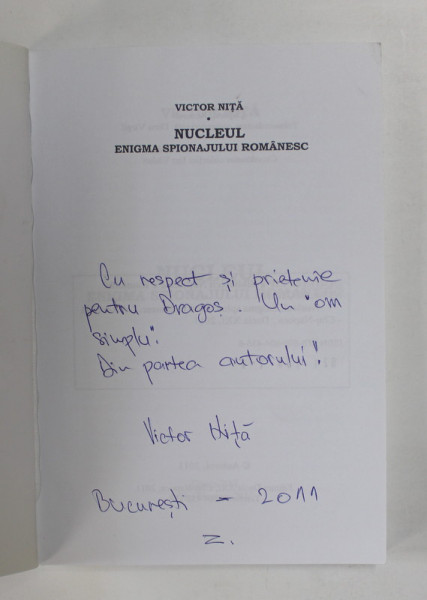 VICTOR NIȚĂ
•
NUCLEUL
ENIGMA SPIONAJULUI ROMÂNESC
Cu respect și prietenie
pentru Dragos. Un "om
simplu".
Din partea autorului!
Victor Niță
București - 2011
Z.